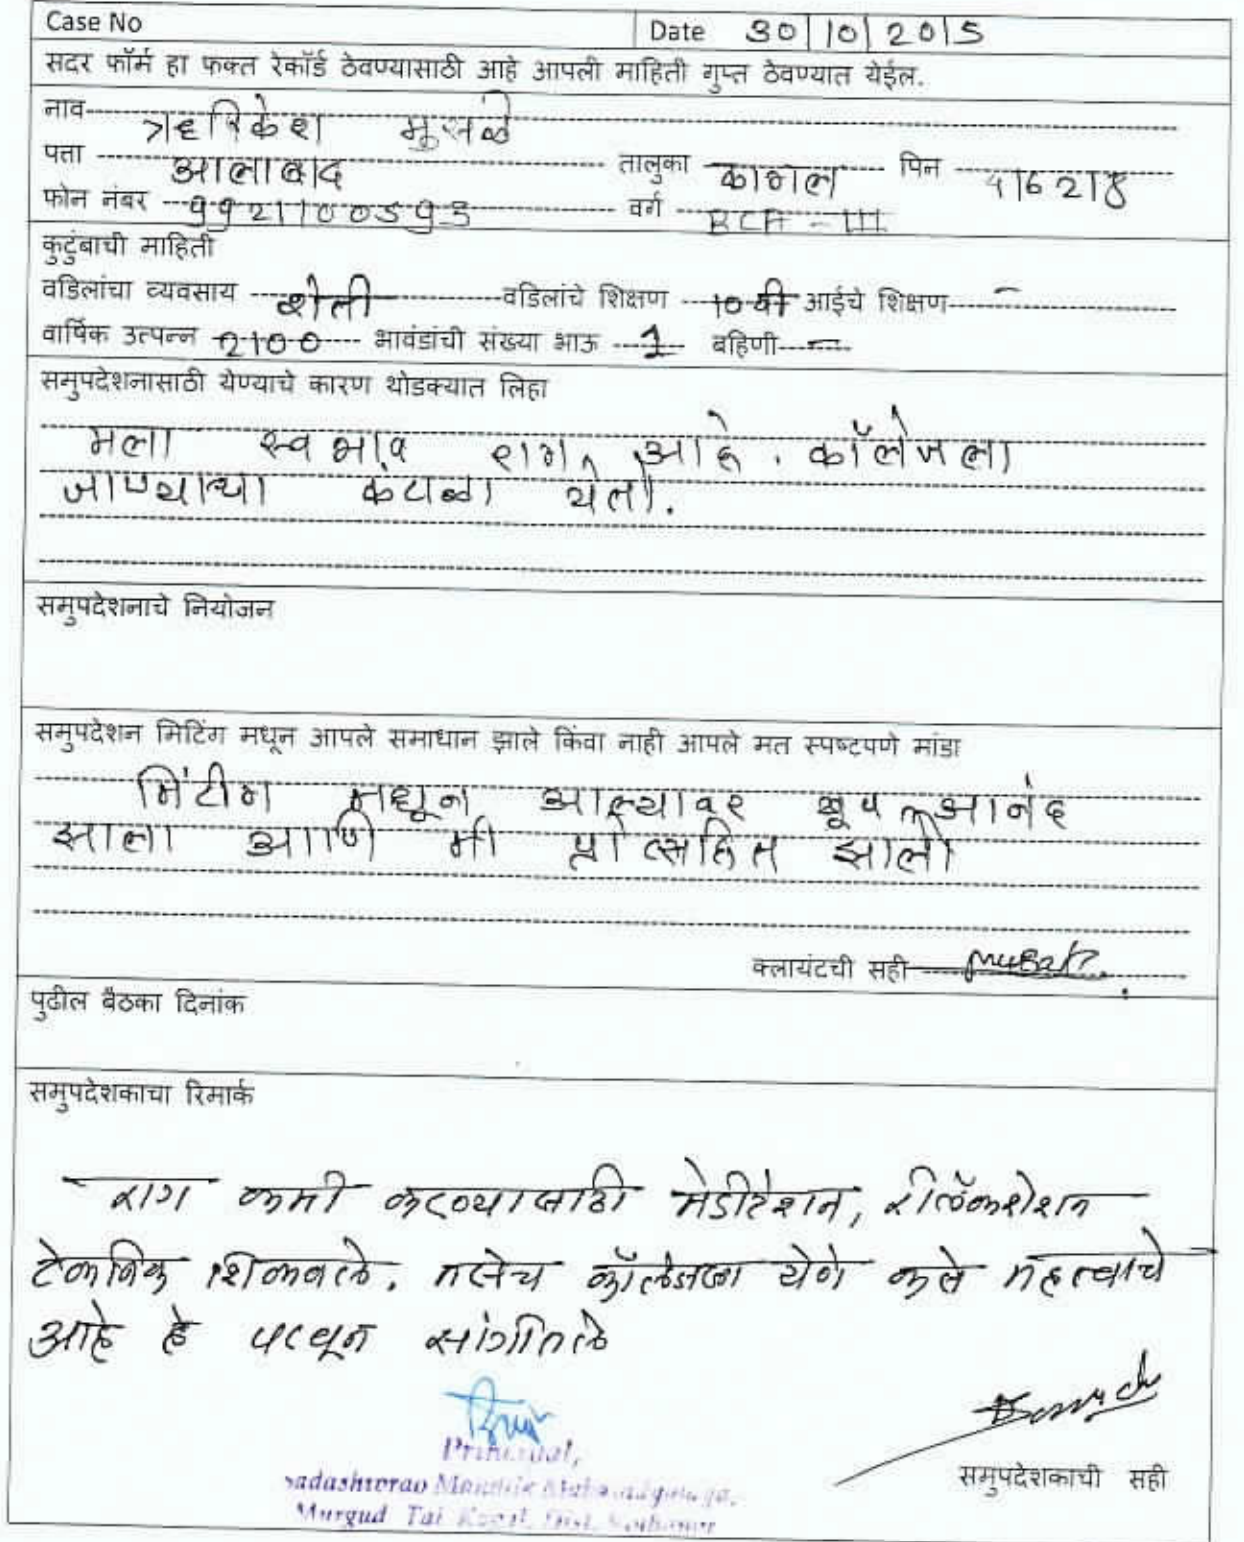 Case No Date 30/10/2015
सदर फॉर्म हा फक्त रेकॉर्ड ठेवण्यासाठी आहे आपली माहिती गुप्त ठेवण्यात येईल.
नाव ऋषिकेश मुसळे
पत्ता आलाबाद तालुका कागल पिन 416218
फोन नंबर 9921100593 वर्ग BCA - III
कुटुंबाची माहिती
वडिलांचा व्यवसाय शेती वडिलांचे शिक्षण 10 वी आईचे शिक्षण -
वार्षिक उत्पन्न 2100 भावंडांची संख्या भाऊ 1 बहिणी -
समुपदेशनासाठी येण्याचे कारण थोडक्यात लिहा
मला स्वभाव राग आहे. कॉलेजला
जाण्याचा कंटाळा येतो.
समुपदेशनाचे नियोजन
समुपदेशन मिटिंग मधून आपले समाधान झाले किंवा नाही आपले मत स्पष्टपणे मांडा
मिंटीग मधून आल्यावर खूप आनंद
झाला आणि मी प्रोत्सहित झालो
क्लायंटची सही
पुढील बैठका दिनांक
समुपदेशकाचा रिमार्क
राग कमी करण्यासाठी मेडीटेशन, रीलॅक्शेशन
टेकनिक शिकवले. तसेच कॉलेजला येणे कसे महत्वाचे
आहे हे पटवून सांगितले
Principal,
Sadashivrao Mandlik Mahavidyalaya,
Murgud Tal Kagal, Dist. Kolhapur
समुपदेशकाची सही